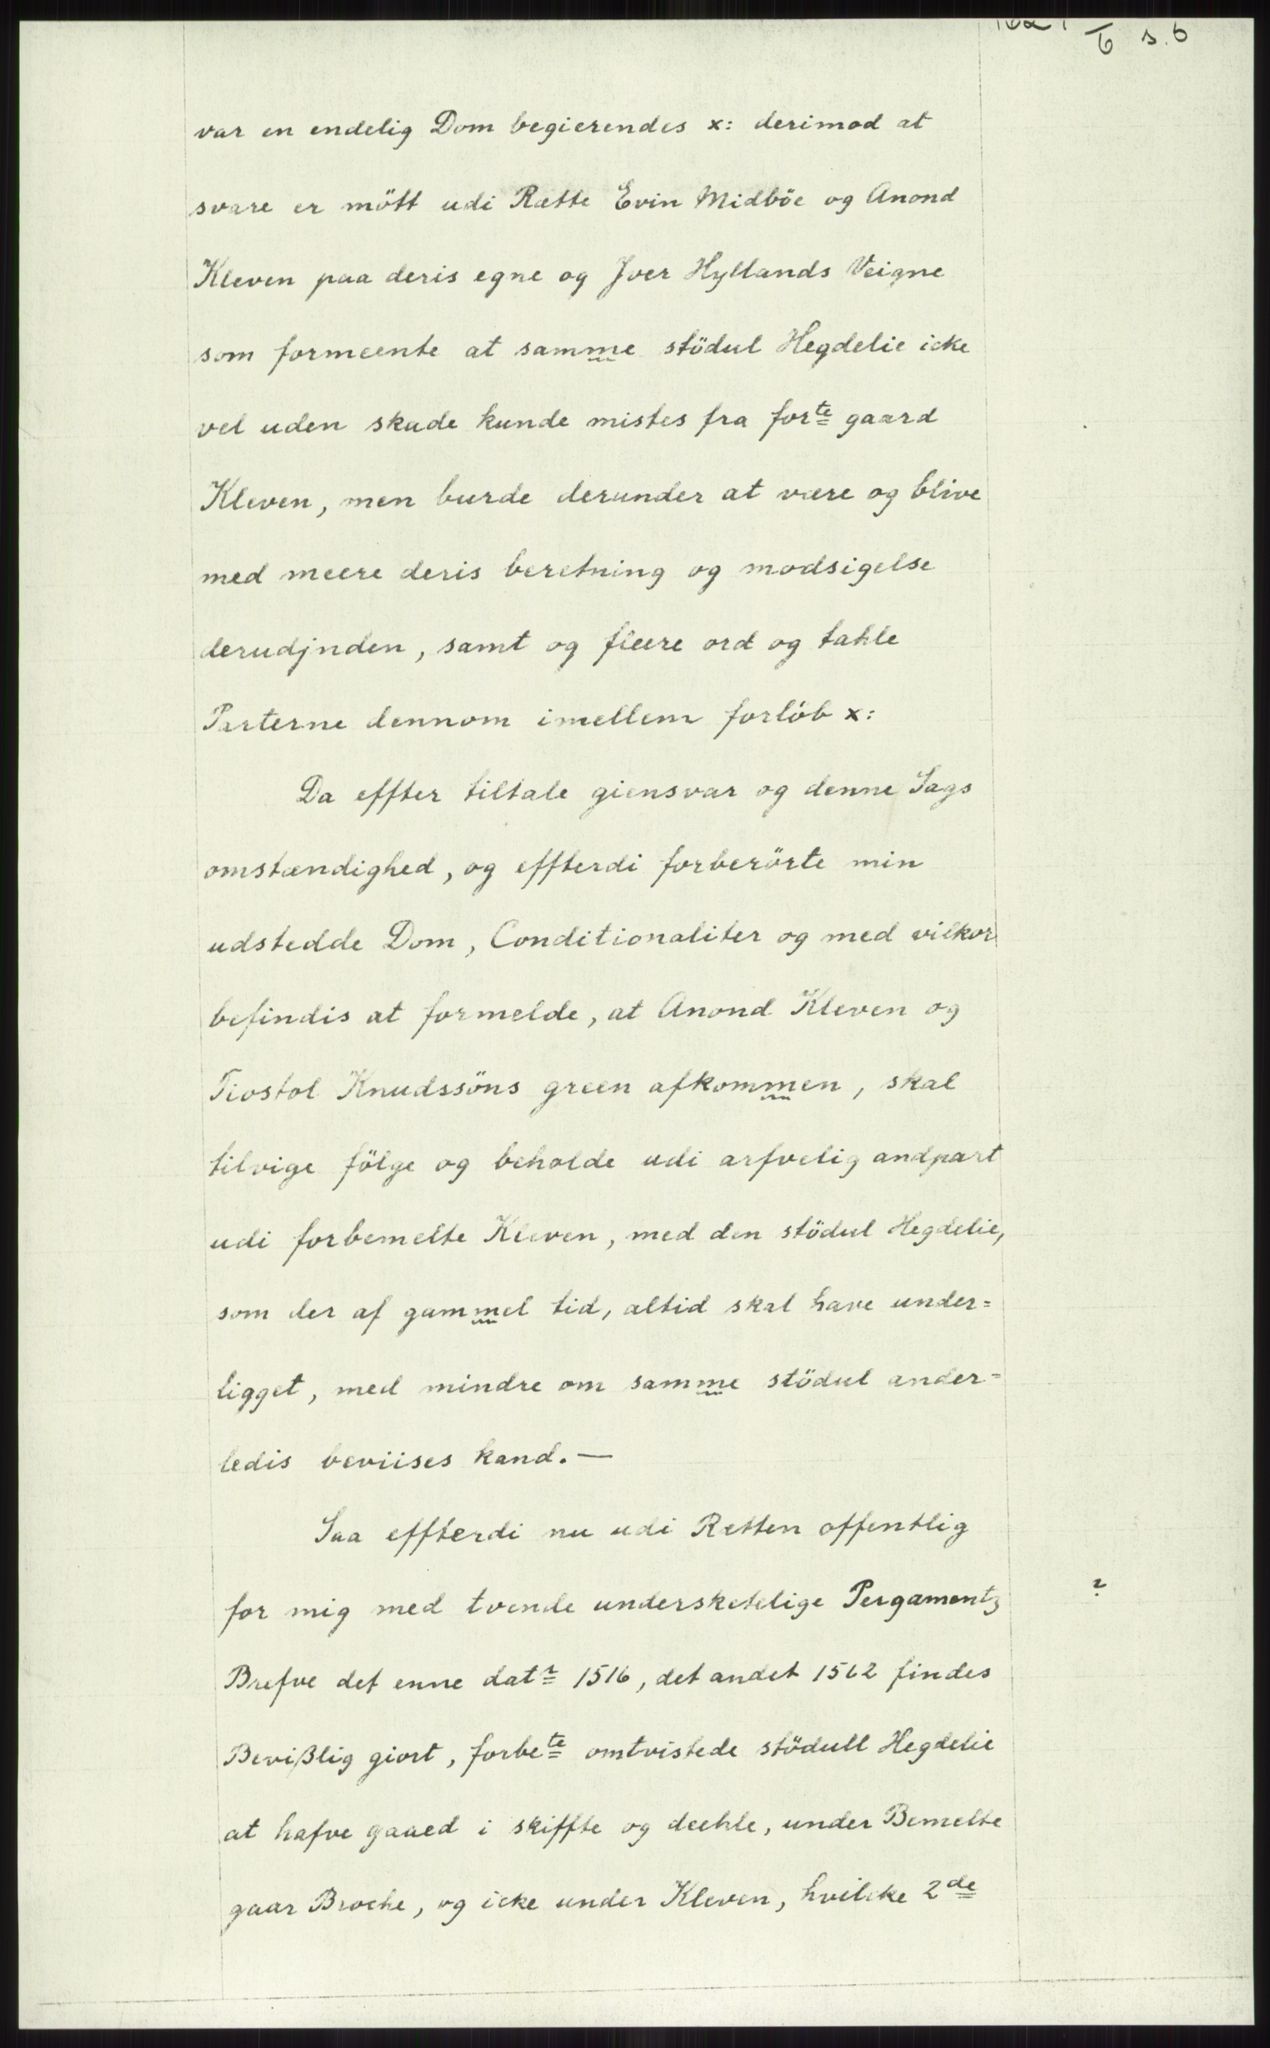 6 s. 6
var en endelig Dom begierendes x: derimod at
svare er mött udi Rette Evin Midböe og Anond
Kleven paa deris egne og Jver Hyllands Veigne
som formeente at samme stödul Hegdelie icke
vel uden skade kunde mistes fra forte gaard
Kleven, men burde derunder at være og blive
med meere deris beretning og modsigelse
derudjnden, samt og fleere ord og tahle
Parterne dennom imellem forlöb x:
Da effter tiltale giensvar og denne Sags
omstændighed, og effterdi forberörte min
udstedde Dom, Conditionaliter og med vilkor
befindis at formelde, at Anond Kleven og
Tiostol Knudssöns green afkommen, skal
tilvige fölge og beholde udi arfvelig andpart
udi forbemelte Kleven, med den stödul Hegdelie,
som der af gammel tid, altid skal have under=
ligget, med mindre om samme stödul ander=
ledis beviises kand. —
Saa effterdi nu udi Retten offentlig
for mig med tvende undersketelige Pergamentz
Brefve det enne dat 1516, det andet 1562 findes
Bevißlig giort, forbete omtvistede stödull Hegdelie
at hafve gaaed i skiffte og deehle, under Bemelte
gaar Broche, og icke under Kleven, hvilcke 2de